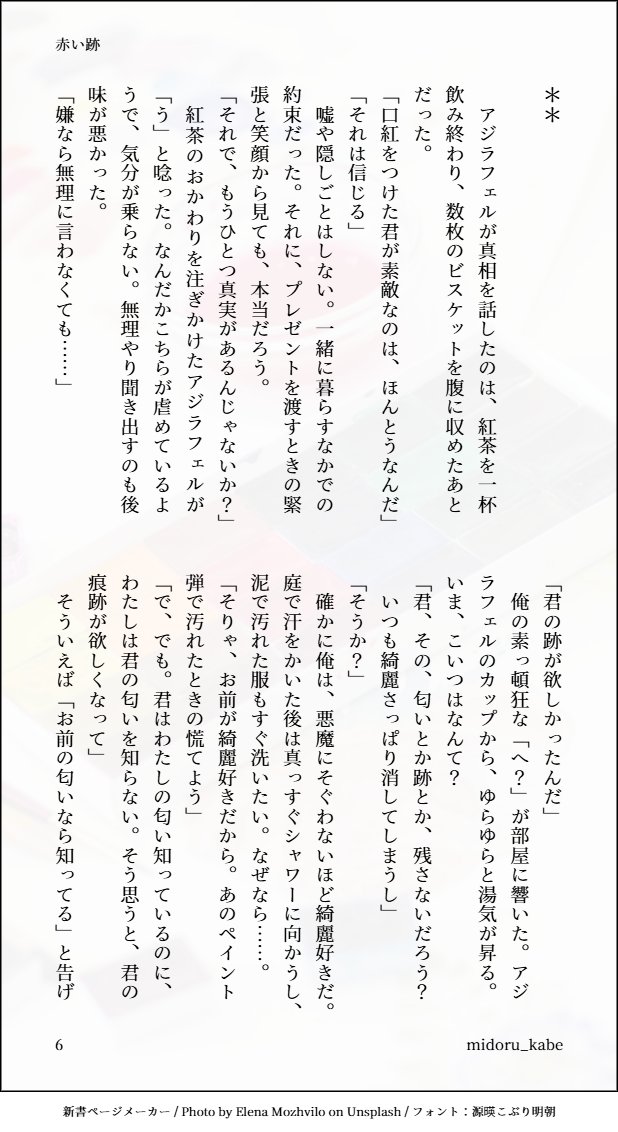 赤い跡
＊＊
　アジラフェルが真相を話したのは、紅茶を一杯
飲み終わり、数枚のビスケットを腹に収めたあと
だった。
「口紅をつけた君が素敵なのは、ほんとうなんだ」
「それは信じる」
　嘘や隠しごとはしない。一緒に暮らすなかでの
約束だった。それに、プレゼントを渡すときの緊
張と笑顔から見ても、本当だろう。
「それで、もうひとつ真実があるんじゃないか？」
　紅茶のおかわりを注ぎかけたアジラフェルが
「う」と唸った。なんだかこちらが虐めているよ
うで、気分が乗らない。無理やり聞き出すのも後
味が悪かった。
「嫌なら無理に言わなくても……」
「君の跡が欲しかったんだ」
　俺の素っ頓狂な「へ？」が部屋に響いた。アジ
ラフェルのカップから、ゆらゆらと湯気が昇る。
いま、こいつはなんて？
「君、その、匂いとか跡とか、残さないだろう？
　いつも綺麗さっぱり消してしまうし」
「そうか？」
　確かに俺は、悪魔にそぐわないほど綺麗好きだ。
庭で汗をかいた後は真っすぐシャワーに向かうし、
泥で汚れた服もすぐ洗いたい。なぜなら……。
「そりゃ、お前が綺麗好きだから。あのペイント
弾で汚れたときの慌てよう」
「で、でも。君はわたしの匂い知っているのに、
わたしは君の匂いを知らない。そう思うと、君の
痕跡が欲しくなって」
　そういえば「お前の匂いなら知ってる」と告げ
6
midoru_kabe
新書ページメーカー / Photo by Elena Mozhvilo on Unsplash / フォント：源暎こぶり明朝